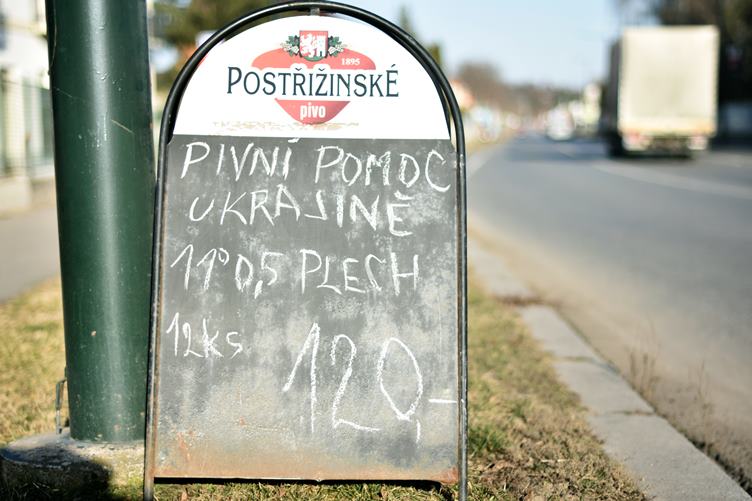 1895
POSTŘIŽINSKÉ
pivo
PIVNÍ POMOC
UKRAJINĚ
11° 0,5 PLECH
12ks 120,-